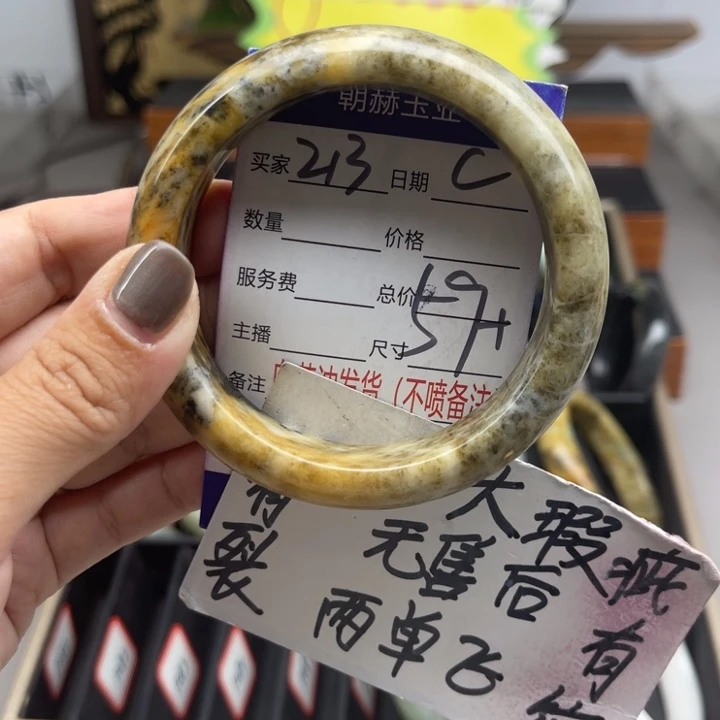 朝赫玉业
买家 213 日期 C
数量 价格
服务费 总价
主播 尺寸 59+
备注
发货(不喷备注
大瑕疵
无售后 有
有裂
两单飞